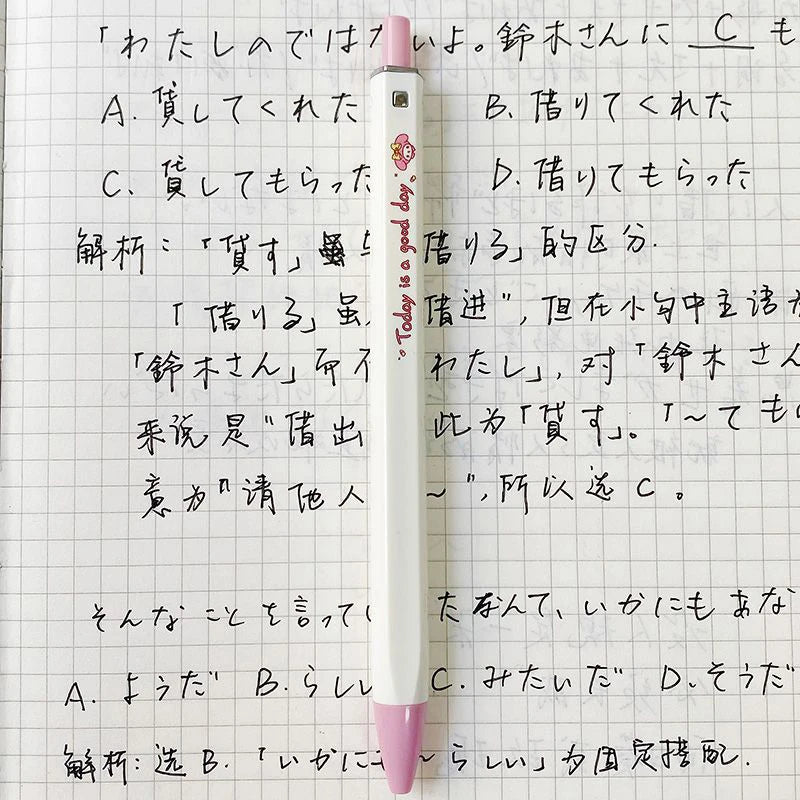 「わたしのではないよ。鈴木さんに C も
A. 貸してくれた B. 借りてくれた
C. 貸してもらった D. 借りてもらった
解析:「貸す」 借りる」的区分.
「借りる」虽 借进",但在小句中主语
「鈴木さん」而不 わたし」,对「鈴木さん
来说是"借出 此为「貸す」。「~ても
意为"请他人 ~",所以选C。
そんなことを言って たなんて、いかにもあな
A. ようだ B. らしい C. みたいだ D. そうだ
解析:选B.「いかに ~らしい」为固定搭配.
Today is a good day